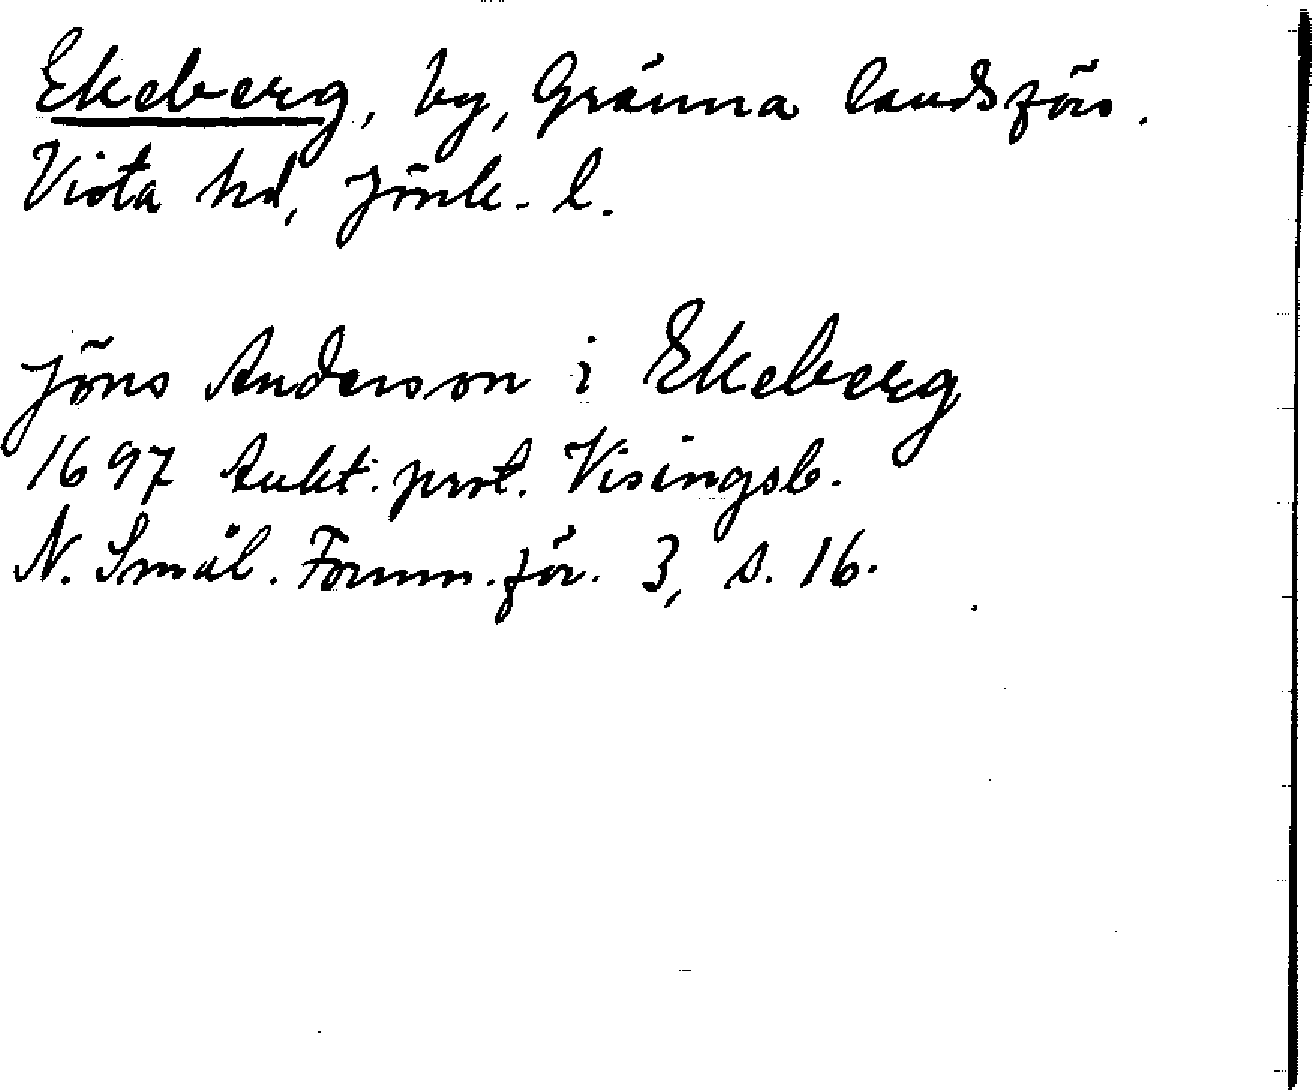 Ekeberg, by, Gränna landsförs.
Vista hd, Jönk. l.
Jöns Anderson i Ekeberg
1697 Aukt. prot. Visingsb.
N. Smål. Fornm. för. 3, s. 16.